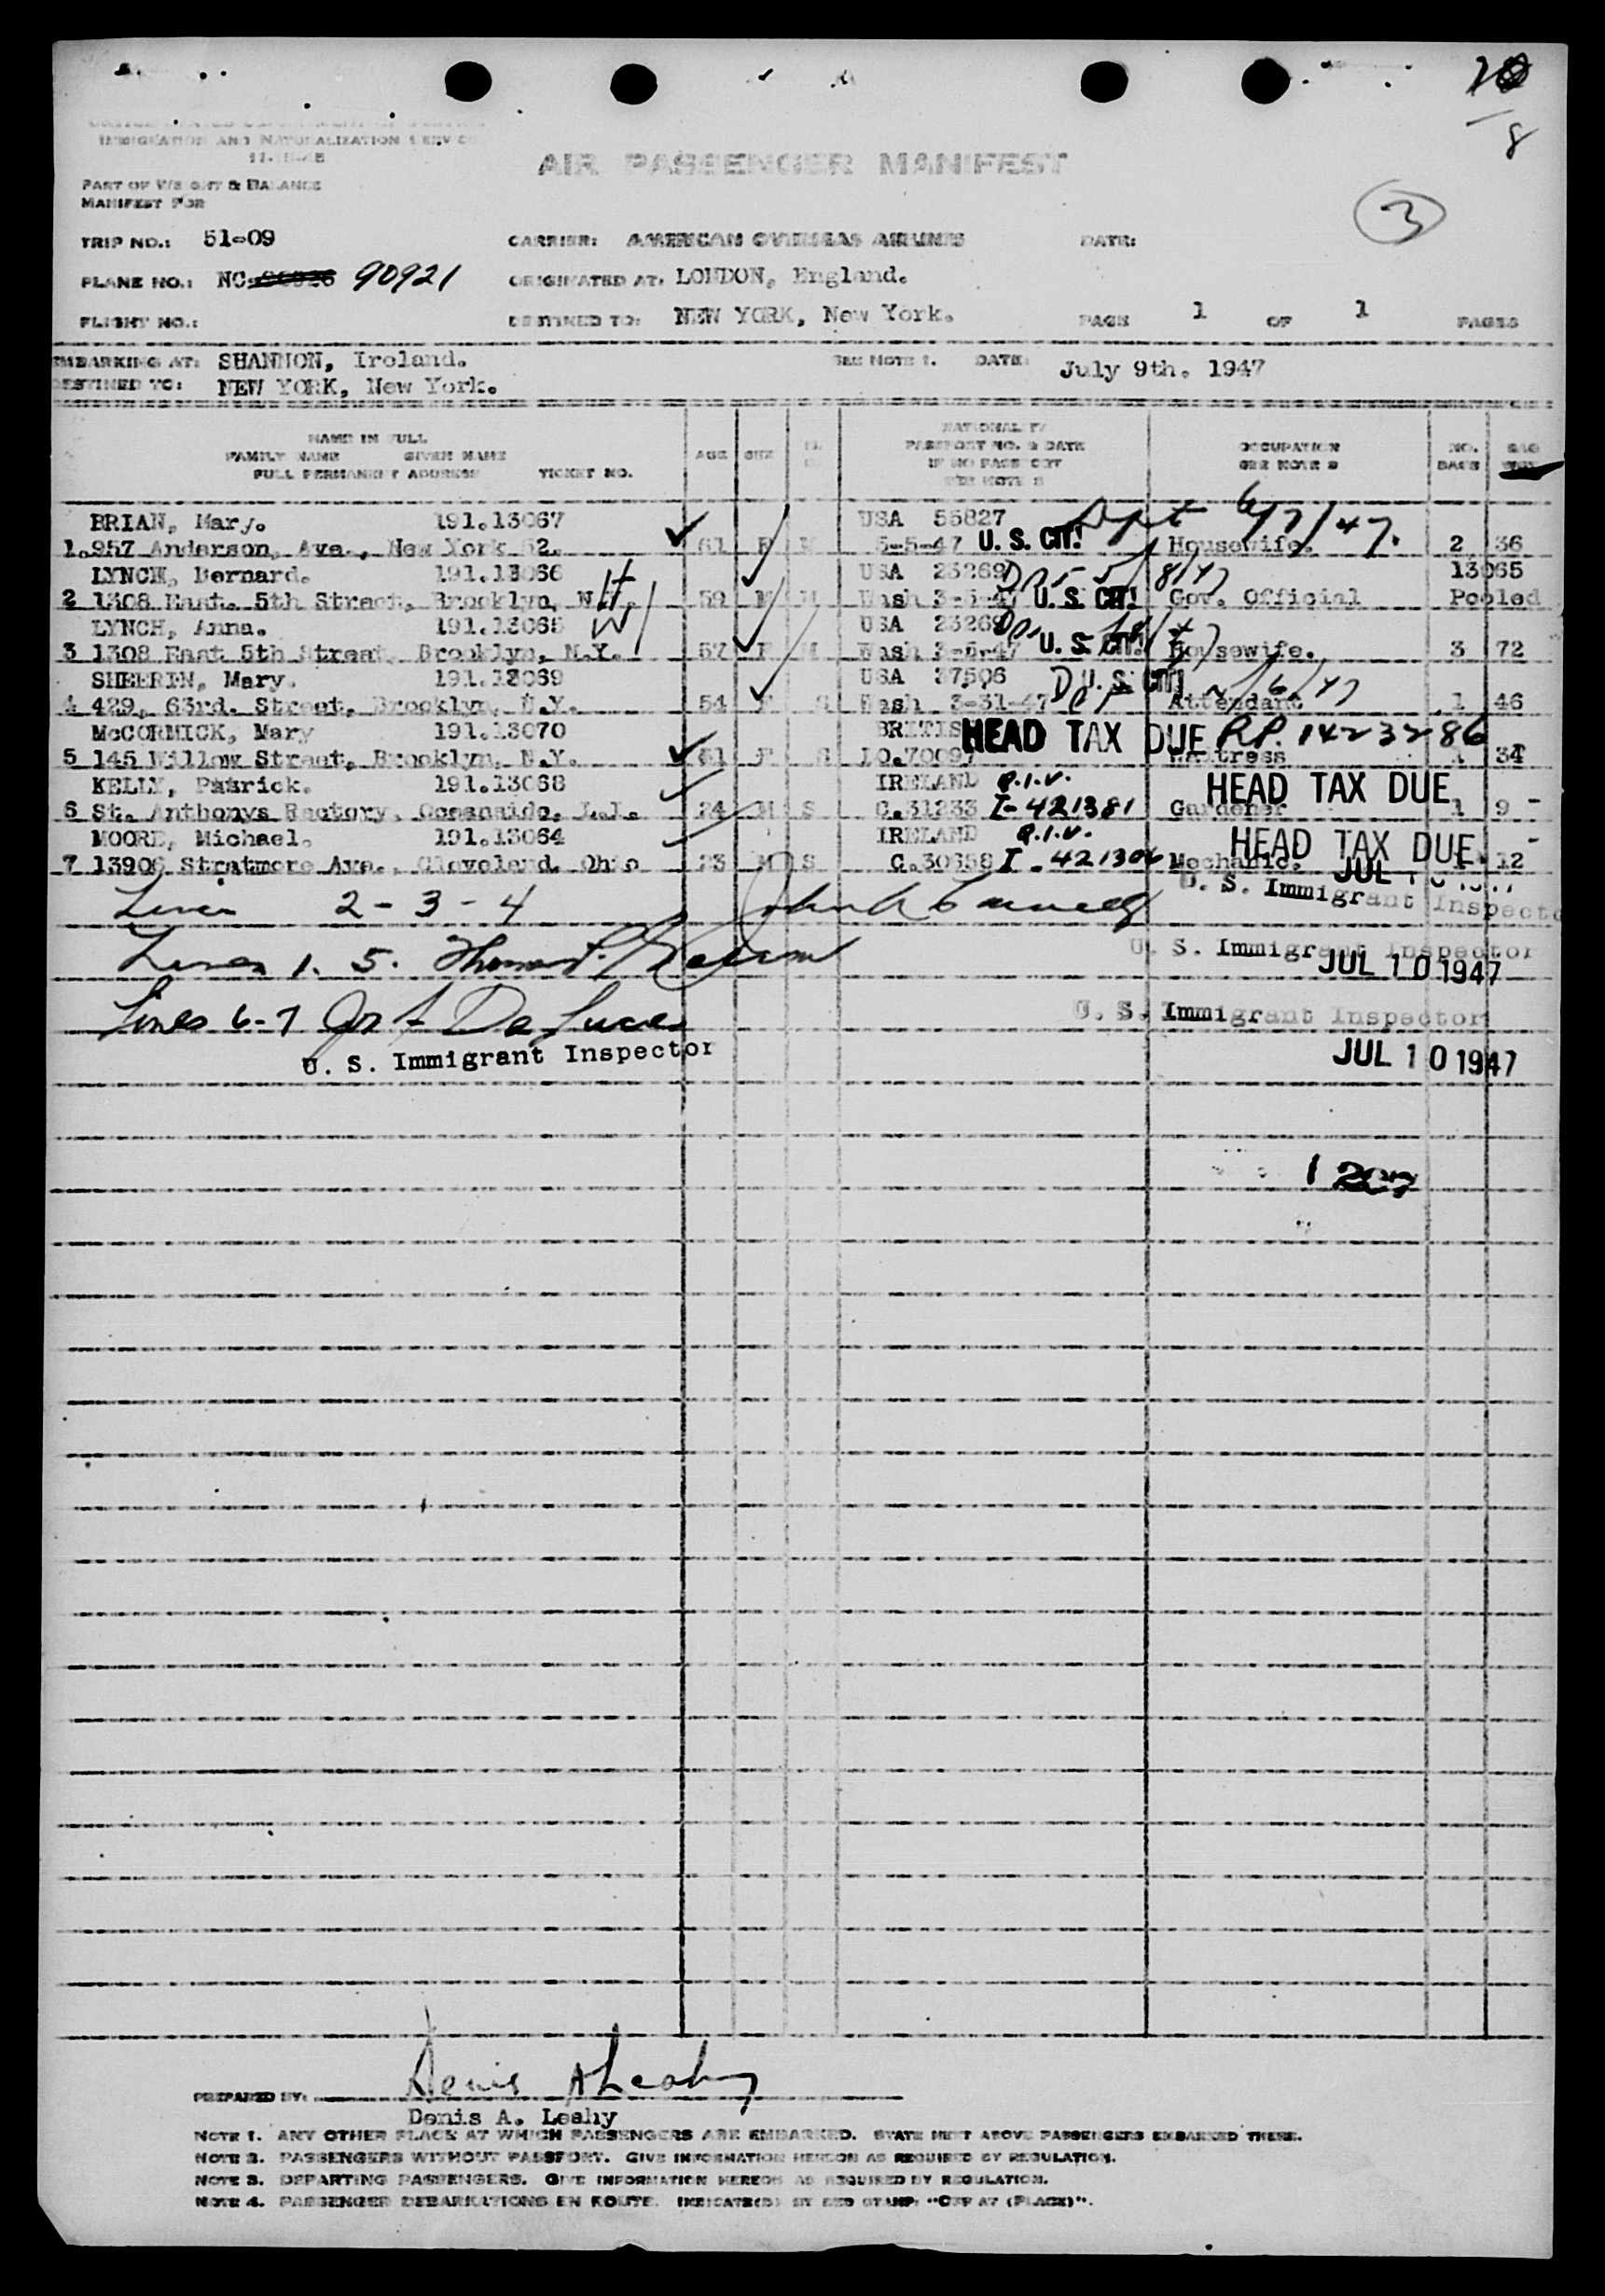 IMMIGRATION AND NATURALIZATION SERVICE
AIR PASSENGER MANIFEST
PART OF WEIGHT & BALANCE
MANIFEST FOR
3
TRIP NO.: 51-09 CARRIER: AMERICAN OVERSEAS AIRLINES DATE:
PLANE NO.: NC 90921 ORIGINATED AT: LONDON, England.
FLIGHT NO.: DESTINED TO: NEW YORK, New York. PAGE 1 OF 1 PAGES
EMBARKING AT: SHANNON, Ireland. SEE NOTE 1. DATE: July 9th. 1947
DESTINED TO: NEW YORK, New York.
NAME IN FULL
FAMILY NAME GIVEN NAME
FULL PERMANENT ADDRESS TICKET NO. AGE SEX
NATIONALITY
PASSPORT NO. & DATE
IF NO PASSPORT
SEE NOTE 2
OCCUPATION
SEE NOTE 3
NO. BAGS
BAG
BRIAN, Mary. 191.13067 USA 55827 Dept 6/7/47.
1. 957 Anderson, Ave., New York 52. 61 F 5-5-47 U. S. CIT! Housewife. 2 36
LYNCH, Bernard. 191.13066 USA 23269 13065
2 1308 East. 5th Street, Brooklyn, N.Y. 59 M M Wash 3-5-47 U. S. CIT! Gov. Official Pooled
LYNCH, Anna. 191.13065 W USA
3 1308 East 5th Street, Brooklyn, N.Y. 57 F M Wash U. S. CIT! Housewife. 3 72
SHEERIN, Mary. 191.13069 USA 37506 U. S. CIT!
4 429, 63rd. Street, Brooklyn, N.Y. 54 F S Wash 3-31-47 Attendant 1 46
McCORMICK, Mary 191.13070 HEAD TAX DUE R.P. 1423286
5 145 Willow Street, Brooklyn, N.Y. 51 F S LO.70097 Waitress 1 34
KELLY, Patrick. 191.13068 IRELAND Q.I.V. HEAD TAX DUE
6 St. Anthonys Rectory, Oceanside, L.I. 24 M S C.31233 I-421381 Gardener 1 9 -
MOORE, Michael. 191.13064 IRELAND Q.I.V. HEAD TAX DUE -
7 13906 Stratmore Ave., Cleveland, Ohio 23 M S C.30658 I-421306 Mechanic. 1 12
Lines 2-3-4 U. S. Immigrant Inspector
Lines 1. 5. U. S. Immigrant Inspector
JUL 10 1947
Lines 6-7 U. S. Immigrant Inspector
U. S. Immigrant Inspector JUL 10 1947
PREPARED BY: Denis A Leahy
Denis A. Leahy
NOTE 1. ANY OTHER PLACE AT WHICH PASSENGERS ARE EMBARKED. STATE NEXT ABOVE PASSENGERS EMBARKED THERE.
NOTE 2. PASSENGERS WITHOUT PASSPORT. GIVE INFORMATION HEREON AS REQUIRED BY REGULATION.
NOTE 3. DEPARTING PASSENGERS. GIVE INFORMATION HEREON AS REQUIRED BY REGULATION.
NOTE 4. PASSENGER DEBARKATIONS EN ROUTE. INDICATE(D) BY RED STAMP: "OFF AT (PLACE)".